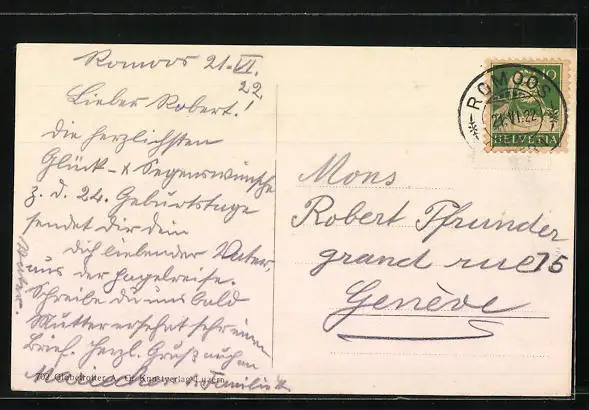 Romoos 21. VI.
22.
Lieber Robert!
Die herzlichsten
Glück- & Segenswünsche
z. d. 24. Geburtstage
sendet dir dein
dich liebender Vater,
aus der
Schreibe du uns bald
Mutter ersehnt sehr einen
Brief. Herzl. Gruß auch an
Familie
702 Globetrotter A. G. Kunstverlag Luzern
10
HELVETIA
ROMOOS
21.VI.22
Mons
Robert Pfrunder
grand rue 15
Genève